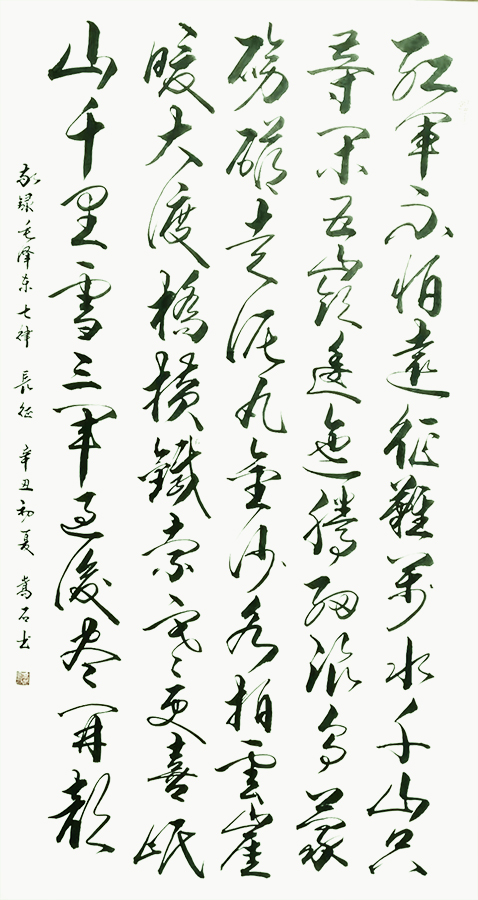 紅軍不怕遠征難万水千山只
等闲五嶺逶迤騰細浪烏蒙
磅礴走泥丸金沙水拍雲崖
暖大渡橋橫鐵索寒更喜岷
山千里雪三軍過後尽開顏
敬録毛泽东七律 長征 辛丑初夏 嵩石书